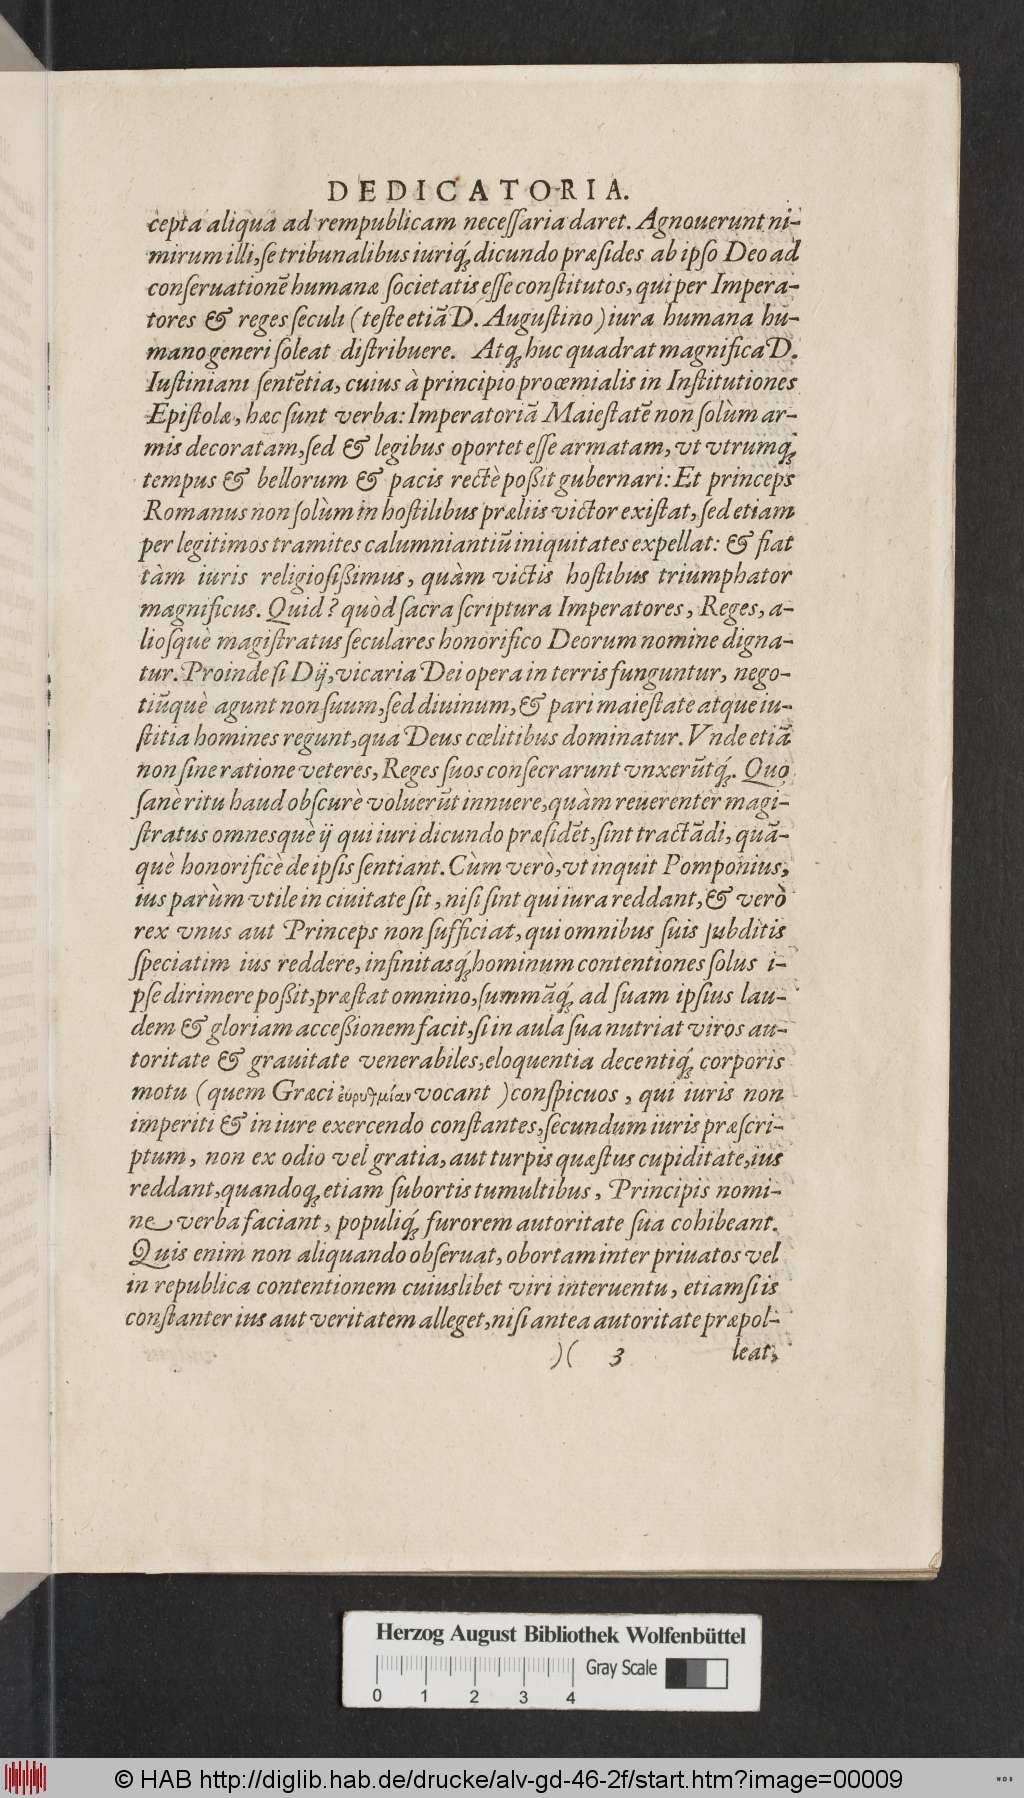 DEDICATORIA.
cepta aliqua ad rempublicam neceſſaria daret. Agnouerunt ni-
mirum illi, ſe tribunalibus iuriq́; dicundo præſides ab ipſo Deo ad
conſeruationē humanæ ſocietatis eſſe conſtitutos, qui per Impera-
tores & reges ſeculi (teſte etiā D. Auguſtino) iura humana hu-
mano generi ſoleat diſtribuere. Atq; huc quadrat magnifica D.
Iuſtiniani ſentētia, cuius à principio proœmialis in Inſtitutiones
Epiſtolæ, hæc ſunt verba: Imperatoriā Maieſtatē non ſolùm ar-
mis decoratam, ſed & legibus oportet eſſe armatam, vt vtrumq́;
tempus & bellorum & pacis rectè poßit gubernari: Et princeps
Romanus non ſolùm in hoſtilibus præliis victor exiſtat, ſed etiam
per legitimos tramites calumniantiū iniquitates expellat: & fiat
tàm iuris religioſißimus, quàm victis hoſtibus triumphator
magnificus. Quid? quòd ſacra ſcriptura Imperatores, Reges, a-
lioſquè magiſtratus ſeculares honorifico Deorum nomine digna-
tur. Proinde ſi Dij, vicaria Dei opera in terris funguntur, nego-
tiūquè agunt non ſuum, ſed diuinum, & pari maieſtate atque iu-
ſtitia homines regunt, qua Deus cœlitibus dominatur. Vnde etiā
non ſine ratione veteres, Reges ſuos conſecrarunt vnxerūtq́;. Quo
ſanè ritu haud obſcurè voluerūt innuere, quàm reuerenter magi-
ſtratus omnesquè ij qui iuri dicundo præſidēt, ſint tractādi, quā-
què honorificè de ipſis ſentiant. Cùm verò, vt inquit Pomponius,
ius parùm vtile in ciuitate ſit, niſi ſint qui iura reddant, & verò
rex vnus aut Princeps non ſufficiat, qui omnibus ſuis ſubditis
ſpeciatim ius reddere, infinitasq́; hominum contentiones ſolus i-
pſe dirimere poßit, præſtat omnino, ſummāq́; ad ſuam ipſius lau-
dem & gloriam acceßionem facit, ſi in aula ſua nutriat viros au-
toritate & grauitate venerabiles, eloquentia decentiq́; corporis
motu (quem Græci ἐυρυθμίαν vocant) conſpicuos, qui iuris non
imperiti & in iure exercendo conſtantes, ſecundum iuris præſcri-
ptum, non ex odio vel gratia, aut turpis quæſtus cupiditate, ius
reddant, quandoq; etiam ſubortis tumultibus, Principis nomi-
ne verba faciant, populiq́; furorem autoritate ſua cohibeant.
Quis enim non aliquando obſeruat, obortam inter priuatos vel
in republica contentionem cuiuslibet viri interuentu, etiamſi is
conſtanter ius aut veritatem alleget, niſi antea autoritate præpol-
)( 3 leat,
Herzog August Bibliothek Wolfenbüttel
Gray Scale
0 1 2 3 4
© HAB http://diglib.hab.de/drucke/alv-gd-46-2f/start.htm?image=00009